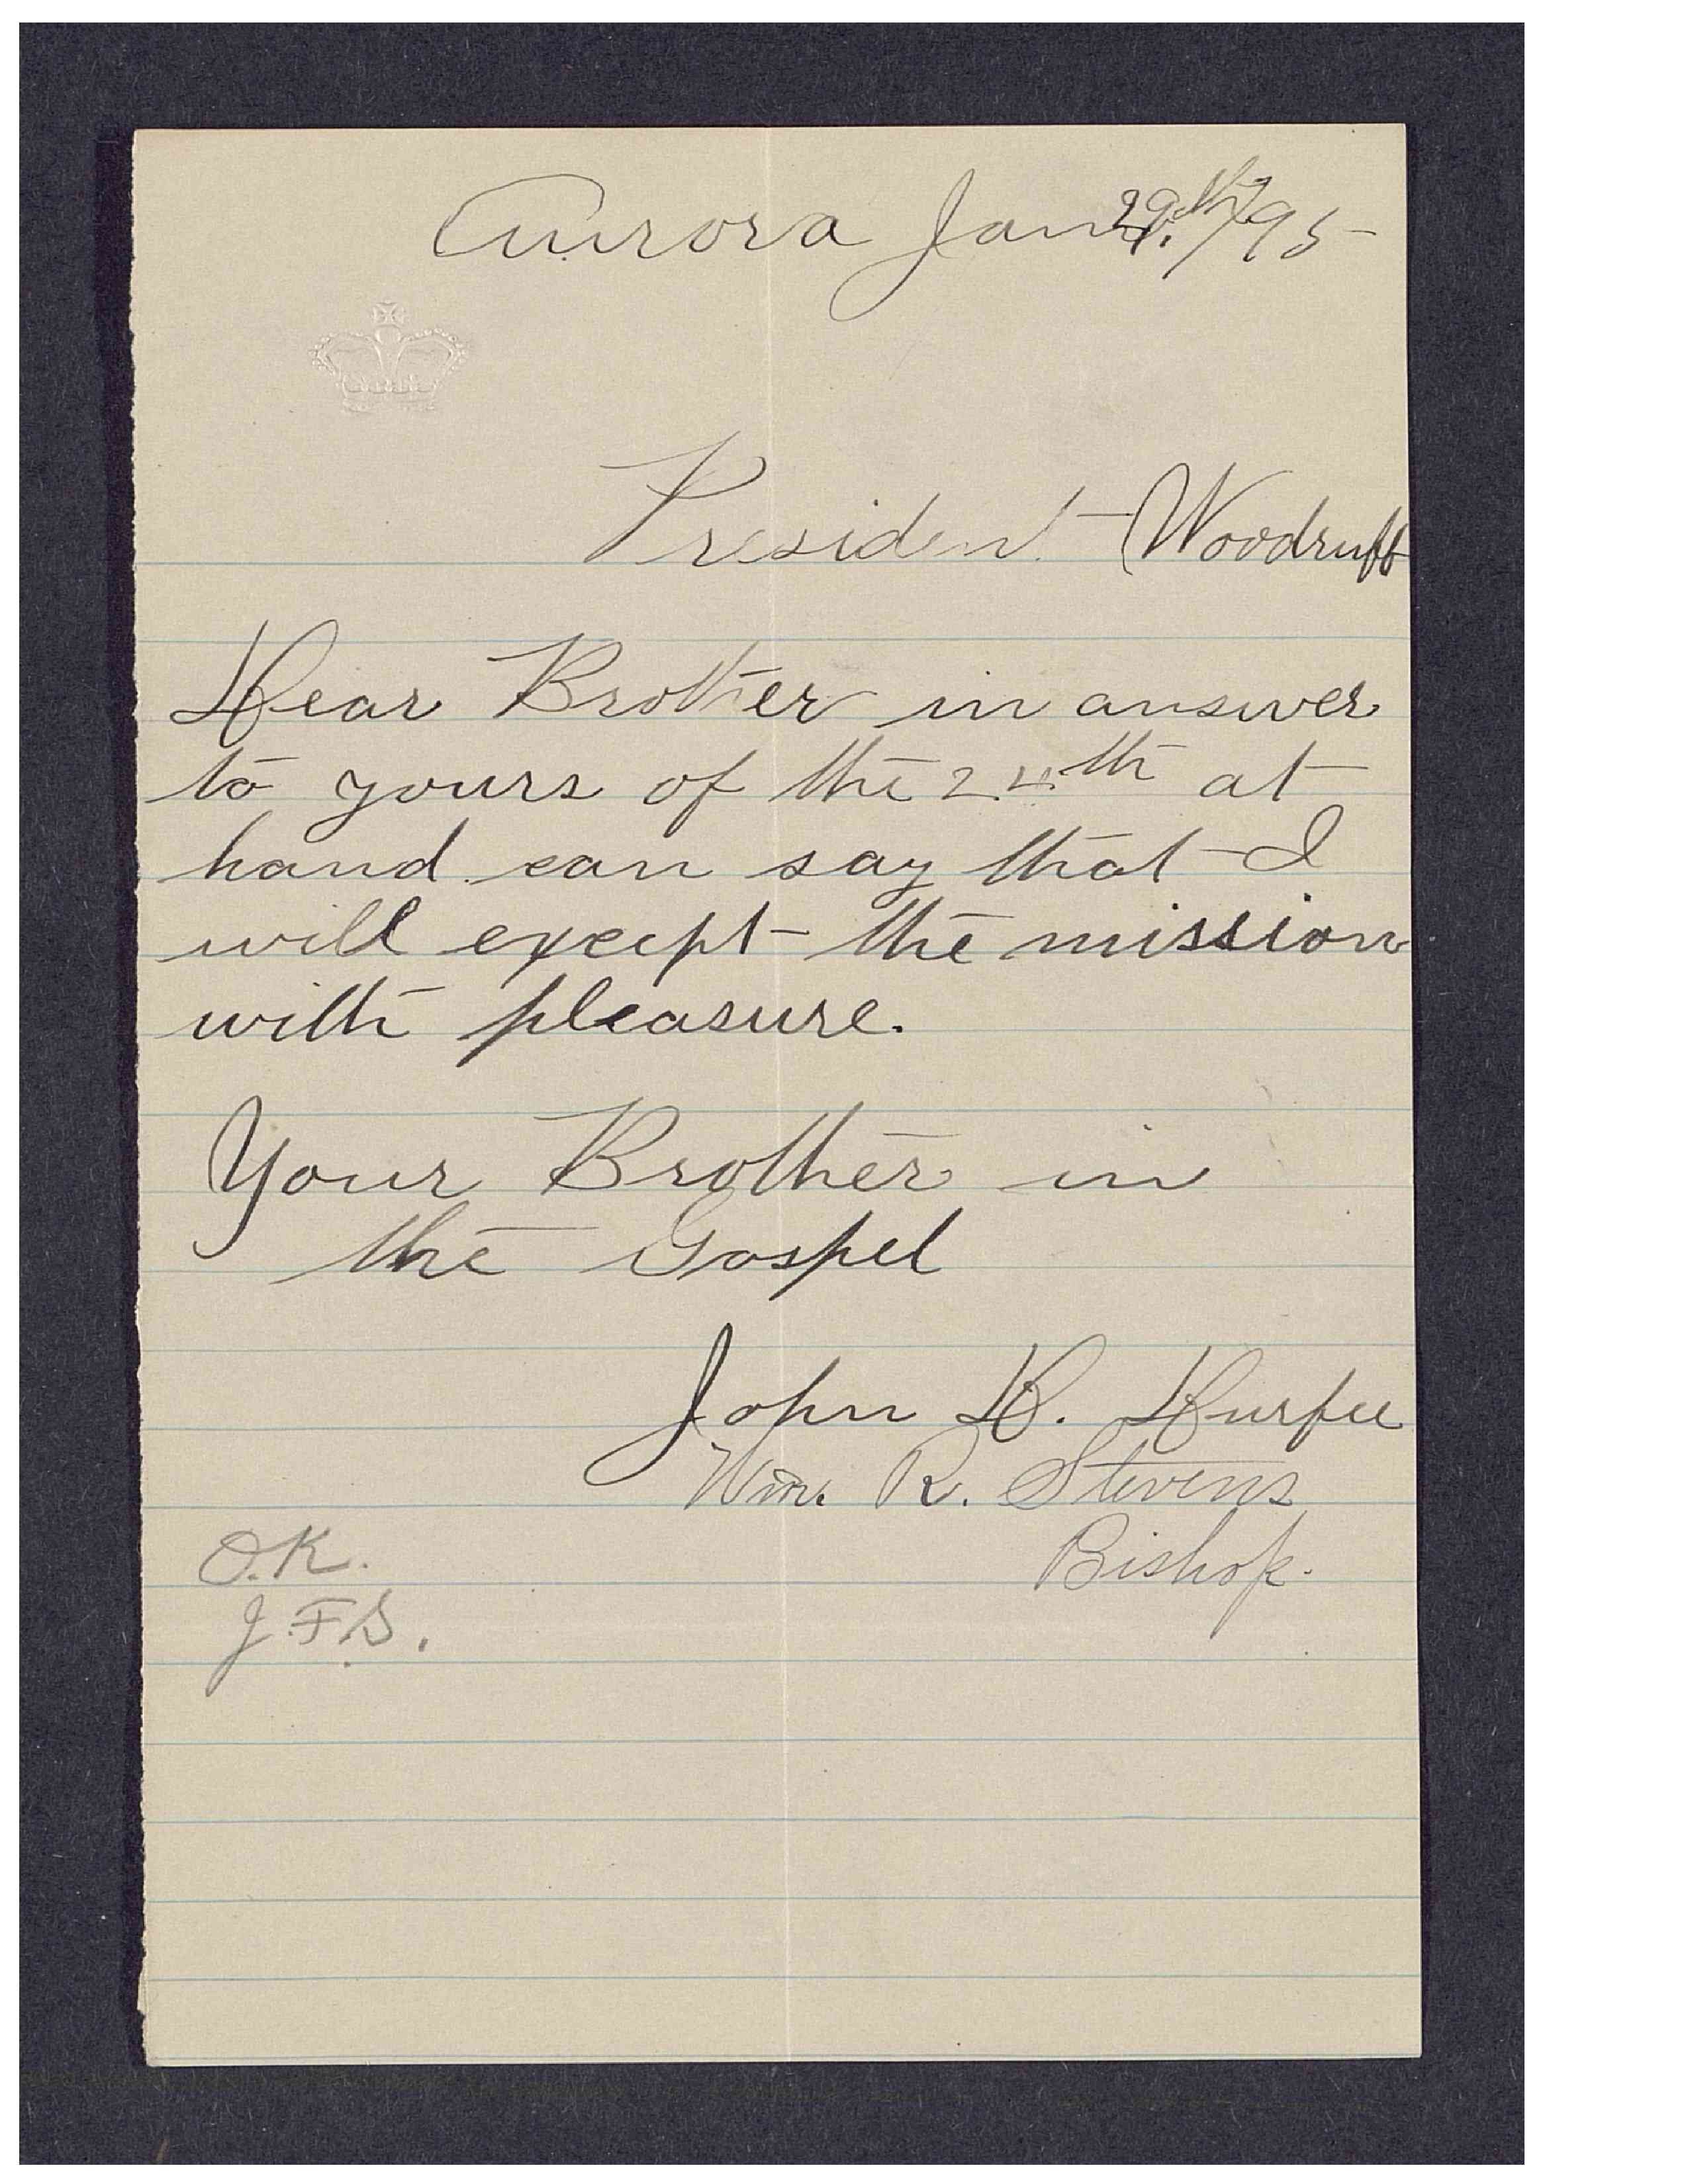 Aurora Jan 29.th/95
President Woodruff
Dear Brother in answer
to yours of the 24th at
hand can say that I
will except the mission
with pleasure.
Your Brother in
the Gospel
John D. Durfee
Wm. R. Stevens
Bishop.
O.K.
J.F.S.